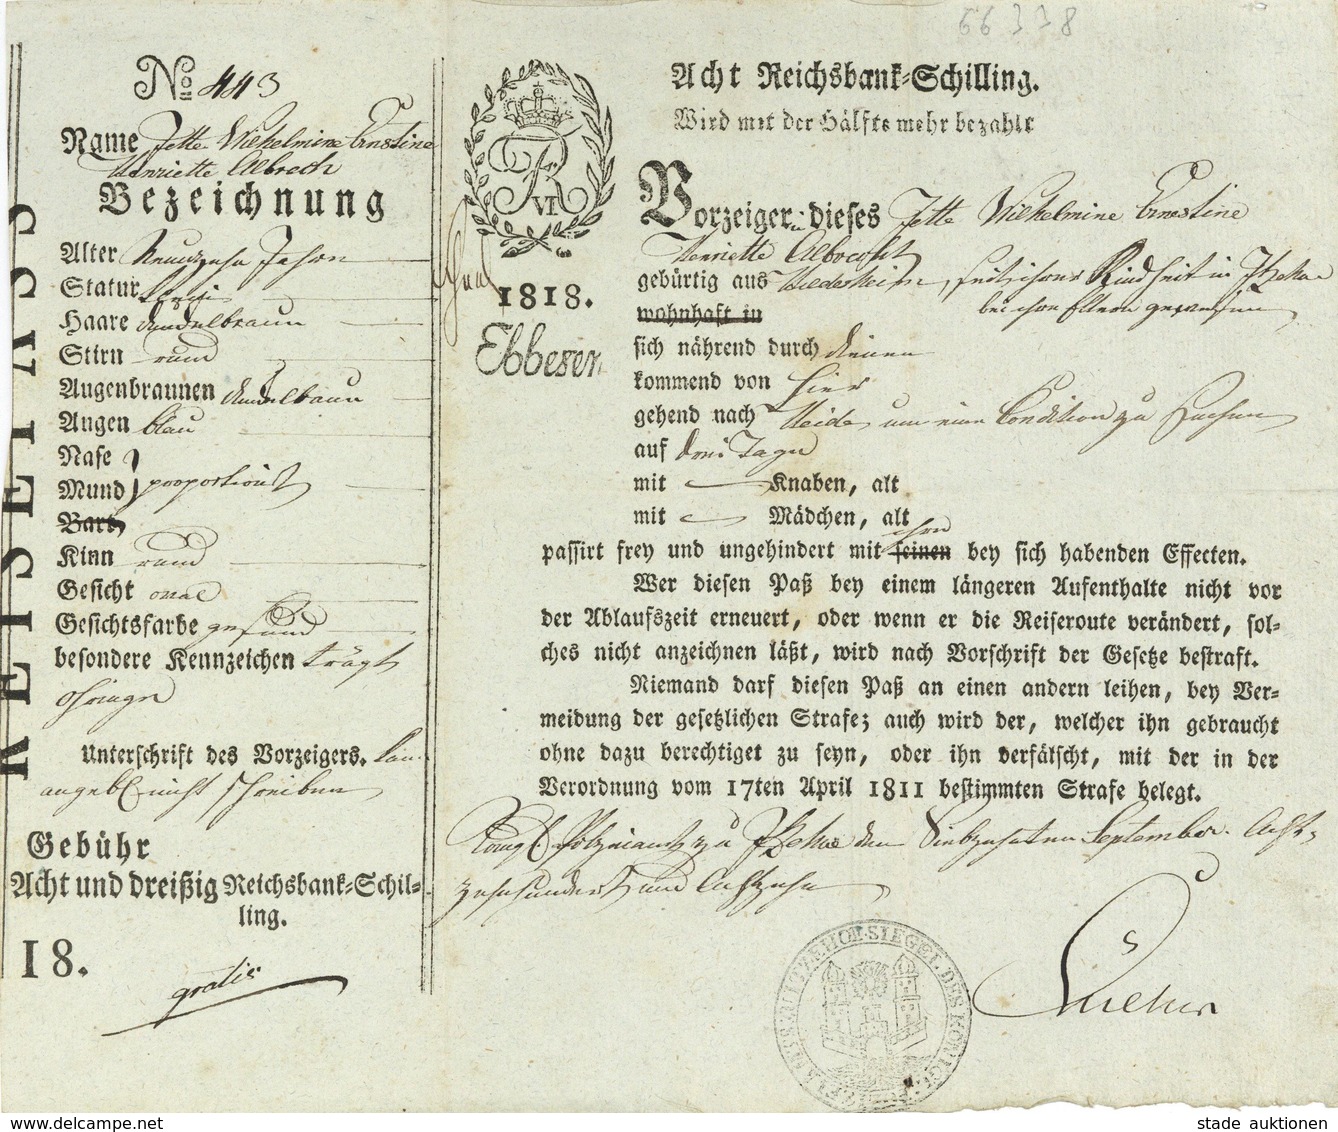 66338
No 443
Name Jette Wilhelmine Ernestine
Henriette Albrecht
Bezeichnung
Alter Neunzehn Jahre
Statur
Haare dunkelbraun
Stirn rund
Augenbraunen dunkelbraun
Augen blau
Nase
Mund proportionirt
Bart
Kinn rund
Gesicht oval
Gesichtsfarbe gesund
besondere Kennzeichen trägt
Ohrringe
Unterschrift des Vorzeigers. kan
angebl nicht schreiben
Gebühr
Acht und dreißig Reichsbank-Schil-
ling.
18.
gratis
REISEPASS
FR VI
1818.
Ebbesen
Acht Reichsbank-Schilling.
Wird mit der Hälfte mehr bezahlt
Vorzeigerin dieses Jette Wilhelmine Ernestine
Henriette Albrecht
gebürtig aus seit ihrer Kindheit in Itzehoe
wohnhaft in bei ihren Eltern gewesen
sich nährend durch dienen
kommend von hier
gehend nach Heide um eine Condition zu suchen
auf drei Tage
mit Knaben, alt
mit Mädchen, alt
ihren
passirt frey und ungehindert mit seinen bey sich habenden Effecten.
Wer diesen Paß bey einem längeren Aufenthalte nicht vor
der Ablaufszeit erneuert, oder wenn er die Reiseroute verändert, sol-
ches nicht anzeichnen läßt, wird nach Vorschrift der Gesetze bestraft.
Niemand darf diesen Paß an einen andern leihen, bey Ver-
meidung der gesetzlichen Strafe; auch wird der, welcher ihn gebraucht
ohne dazu berechtiget zu seyn, oder ihn verfälscht, mit der in der
Verordnung vom 17ten April 1811 bestimmten Strafe belegt.
Königl Polizeiamt zu Itzehoe den Siebzehnten September Acht-
zehnhundert und Achtzehn
stade auktionen
www.delcampe.net